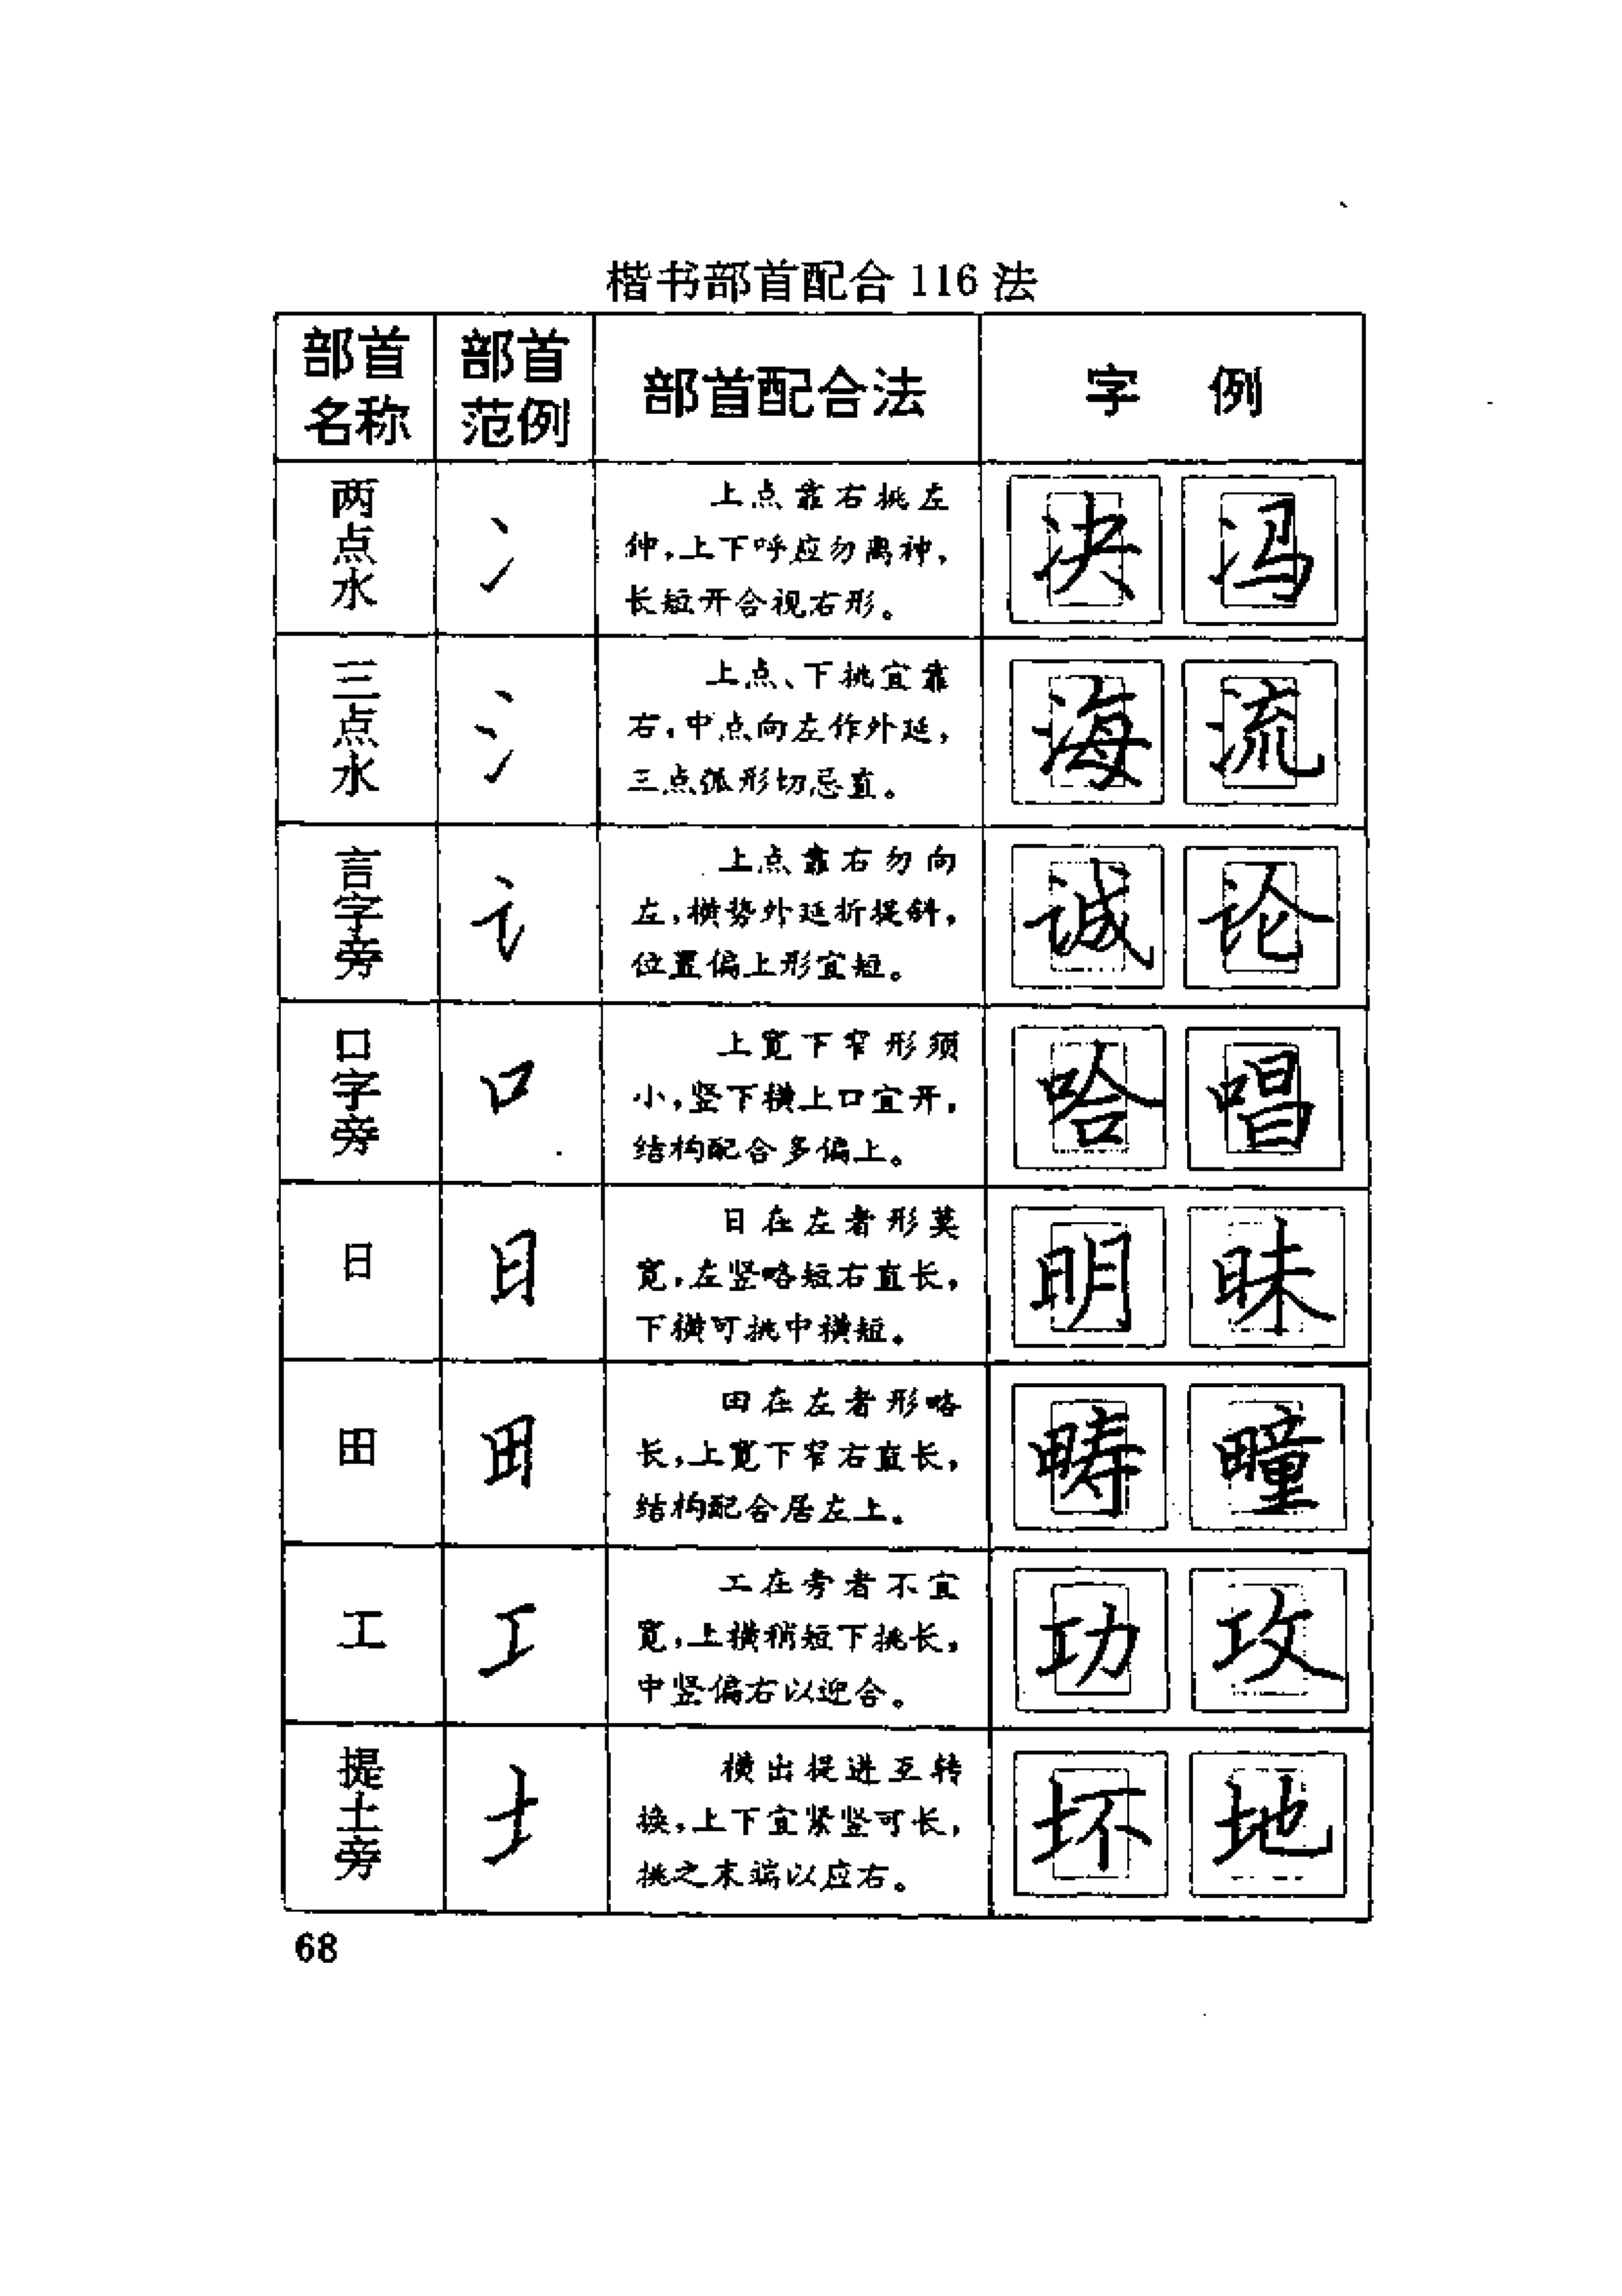 楷书部首配合116法
部首名称
部首范例
部首配合法
字 例
两点水
冫
上点靠右挑左
伸，上下呼应勿离神，
长短开合视右形。
决 冯
三点水
氵
上点、下挑宜靠
右，中点向左作外延，
三点弧形切忌直。
海 流
言字旁
讠
上点靠右勿向
左，横势外延折提斜，
位置偏上形宜短。
诚 论
口字旁
口
上宽下窄形须
小，竖下横上口宜开，
结构配合多偏上。
哈 唱
日
日
日在左者形莫
宽，左竖略短右直长，
下横可挑中横短。
明 昧
田
田
田在左者形略
长，上宽下窄右直长，
结构配合居左上。
畴 疃
工
工
工在旁者不宜
宽，上横稍短下挑长，
中竖偏右以迎合。
功 攻
提土旁
土
横出提进互转
换，上下宜紧竖可长，
挑之末端以应右。
坏 地
68